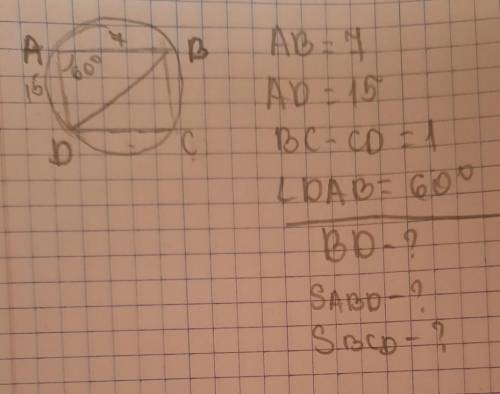 A 7 B
60°
15
D C
AB = 7
AD = 15
BC - CD = 1
∠DAB = 60°
BD - ?
SABD - ?
SBCD - ?